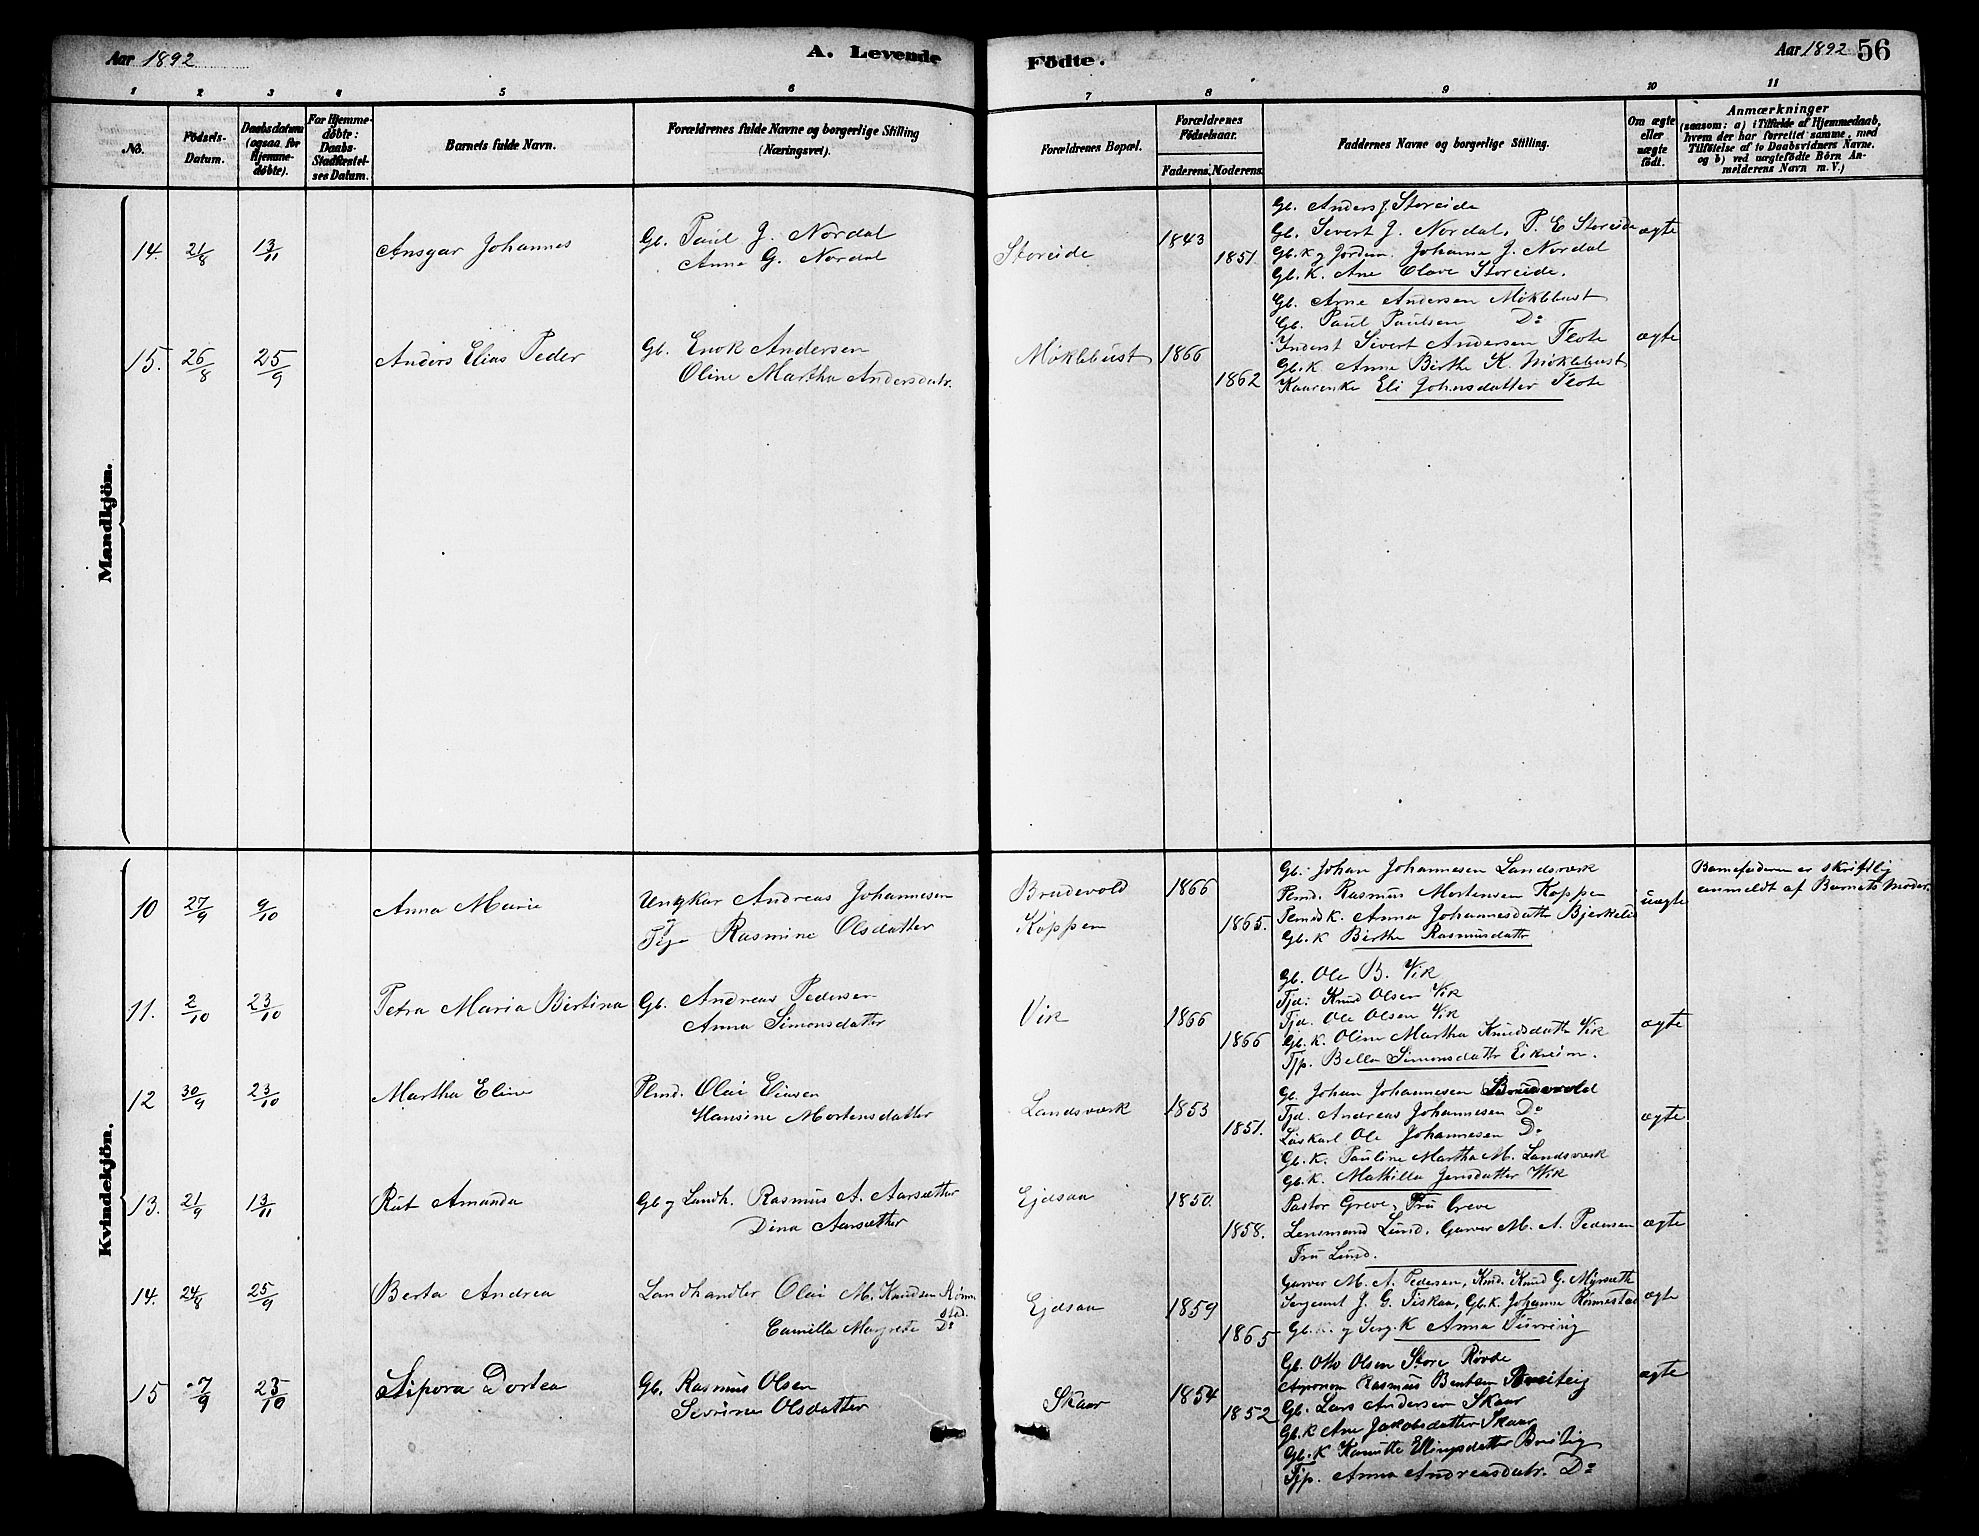 Aar 1892
A. Levende
Fødte.
Aar 1892 56
1 2 3 4 5 6 7 8 9 10 11
No.
Fødsels-Datum.
Daabsdatum (ogsaa for Hjemme-døbte).
For Hjemme-døbte: Daabs-Stadfæstel-ses Datum.
Barnets fulde Navn.
Forældrenes fulde Navne og borgerlige Stilling (Næringsvei).
Forældrenes Bopæl.
Forældrenes Fødselsaar.
Faderens. Moderens.
Faddernes Navne og borgerlige Stilling.
Om ægte eller uægte født.
Anmærkninger
(saasom: a) i Tilfælde af Hjemmedaab, hvem der har forrettet samme, med Tilføielse af to Daabsvidners Navne. og b) ved uægtefødte Børn An-melderens Navn m. V.)
Mandkjön.
14. 21/8 13/11 Ansgar Johannes
Gb. Paul J. Nordal
Anna G. Nordal
Storeide 1843 1851
Gb. Anders J. Storeide
Gb. Sivert J. Nordal, P. E Storeide
Gb.k. og Jordm. Johanne J. Nordal
Gb.k. Ane Olave Storeide.
ægte
15. 26/8 25/9 Anders Elias Peder
Gb. Enok Andersen
Oline Martha Andersdatr.
Møklebust 1866 1862
Gb. Arne Andersen Møklebust
Gb. Paul Paulsen Do
Inderst Sivert Andersen Flote
Gb.k Anna Birthe K. Møklebust
Kaarenke Eli Johnsdatter Flote
ægte
Kvindekjön.
10 27/9 9/10 Anna Marie
Ungkar Andreas Johannesen
og
Pige Rasmine Olsdatter
Brudevold
Koppen
1866 1865.
Gb. Johan Johannesen Landsverk
Plmd. Rasmus Mortensen Koppen
Plmdk. Anna Johannesdatter Bjerkelid
Gb.k Birthe Rasmusdattr
uægte
Barnefaderen er skriftlig
anmeldt af Barnets Moder.
11. 2/10 23/10 Petra Maria Bertina
Gb. Andreas Pedersen
Anna Simonsdatter
Vik 1866 1866
Gb. Ole B. Vik
Tjd. Knud Olsen Vik
Tjd. Ole Olsen Vik
Gb.k. Oline Martha Knudsdattr Vik
Tjp. Bella Simonsdattr Eikrim.
ægte
12 30/9 23/10 Martha Eline
Plmd. Olai Eliasen
Hansine Mortensdatter
Landsverk 1853 1851.
Gb. Johan Johannesen Brudevold
Tjd. Andreas Johannesen Do
Løskarl Ole Johannesen Do
Gb.k. Pauline Martha M. Landsverk
Gb.k. Mathilla Jensdatter Vik
ægte.
13. 21/9 13/11 Rut Amanda
Gb og Landh. Rasmus A. Aarsæther
Dina Aarsæther
Ejdsaa 1850. 1858.
Pastor Greve, Fru Greve
Lensmand Lund, Garver M. A. Pedersen
Fru Lund.
ægte
14. 24/8 25/9 Berta Andrea
Landhandler Olai M. Knudsen Rønne
stad.
Camilla Margrete Do
Ejdsaa 1859 1865
Garver M. A. Pedersen, Kmd. Knud G. Myrsæth
Sergeant J. G. Fiskaa, Gb.k. Johanna Rønnestad
Gb. og Serg.K Anna
ægte
15 7/9 23/10 Sipora Dortea
Gb. Rasmus Olsen
Severine Olsdatter
Skaar 1854 1852
Gb. Otto Olsen Store Røvde
Agronom Rasmus Bentsen Breiteig
Gb. Lars Andersen Skaar
Gb.k Ane Jakobsdatter Skaar
Gb.k Kanutte Ellingsdatter Breiteig
Tjp. Anna Andreasdatr. Do
ægte